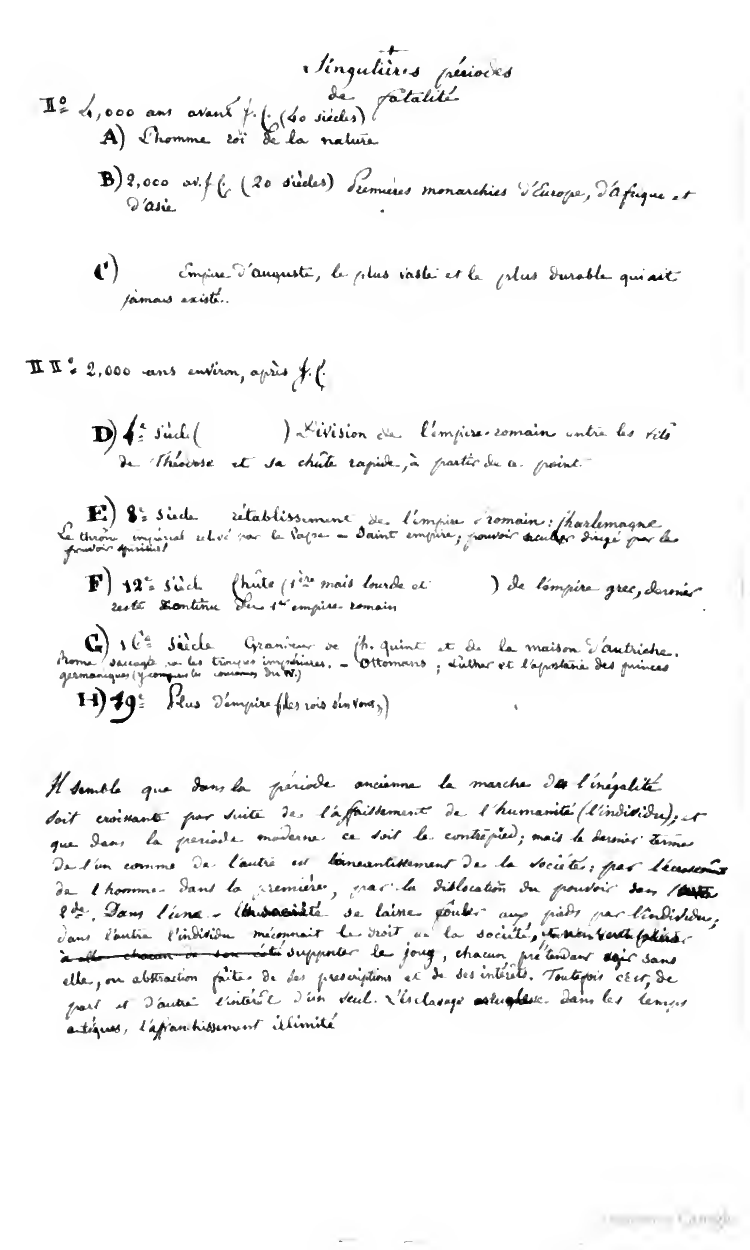 Singulières périodes
de fatalité
I° 4,000 ans avant J. C. (40 siècles)
A) L'homme roi de la nature
B) 2,000 av. J C. (20 siècles) Premières monarchies d'Europe, d'Afrique et
d'Asie
C) Empire d'auguste, le plus vaste et le plus durable qui ait
jamais existé..
II° 2,000 ans environ, après J. C.
D) 4e siècl ( ) Division de l'empire romain entre les fils
de Théodose et sa chûte rapide, à partir de ce point
E) 8e siècle rétablissement de l'empire romain: Charlemagne
Le thrône impérial relevé par le Pape – Saint empire; pouvoir séculier dirigé par le
pouvoir spirituel
F) 12e siècl Chûte (1ère mais lourde et ) de l'empire grec, dernier
reste continu du 1er empire romain
G) 16e siècle Grandeur de Ch. quint et de la maison d'autriche.
Rome saccagée par les troupes impériales. – Ottomans; Luther et l'apostasie des princes
germaniques (y compris les du N.)
H) 19e Plus d'empire (les rois s'en vont,)
Il semble que dans la période ancienne la marche de l'inégalité
soit croissante par suite de l'affaissement de l'humanité (l'individu); et
que dans la période moderne ce soit le contrepied; mais le dernier terme
de l'un comme de l'autre est l'anéantissement de la société: par l'écrasement
de l'homme dans la première, par la dislocation du pouvoir dans la
2de. Dans l'une – la société se laisse fouler aux pieds par l'individu;
dans l'autre l'individu méconnait le droit de la société,
à elle chacun de son côté supporter le joug, chacun prétendant agir sans
elle, ou abstraction faite de ses prescriptions et de ses intérêts. Toutefois c'est, de
part et d'autre l'intérêt d'un seul. L'esclavage dans les temps
antiques, l'affranchissement illimité
Google